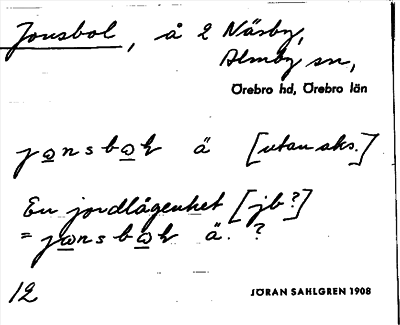 Jonsbol, å 2 Näsby,
Almby sn,
Örebro hd, Örebro län
jɷnsbɷɫ ä [utan aks.]
En jordlägenhet [jb?]
= jɷnsbɷɫ ä. ?
12 JÖRAN SAHLGREN 1908